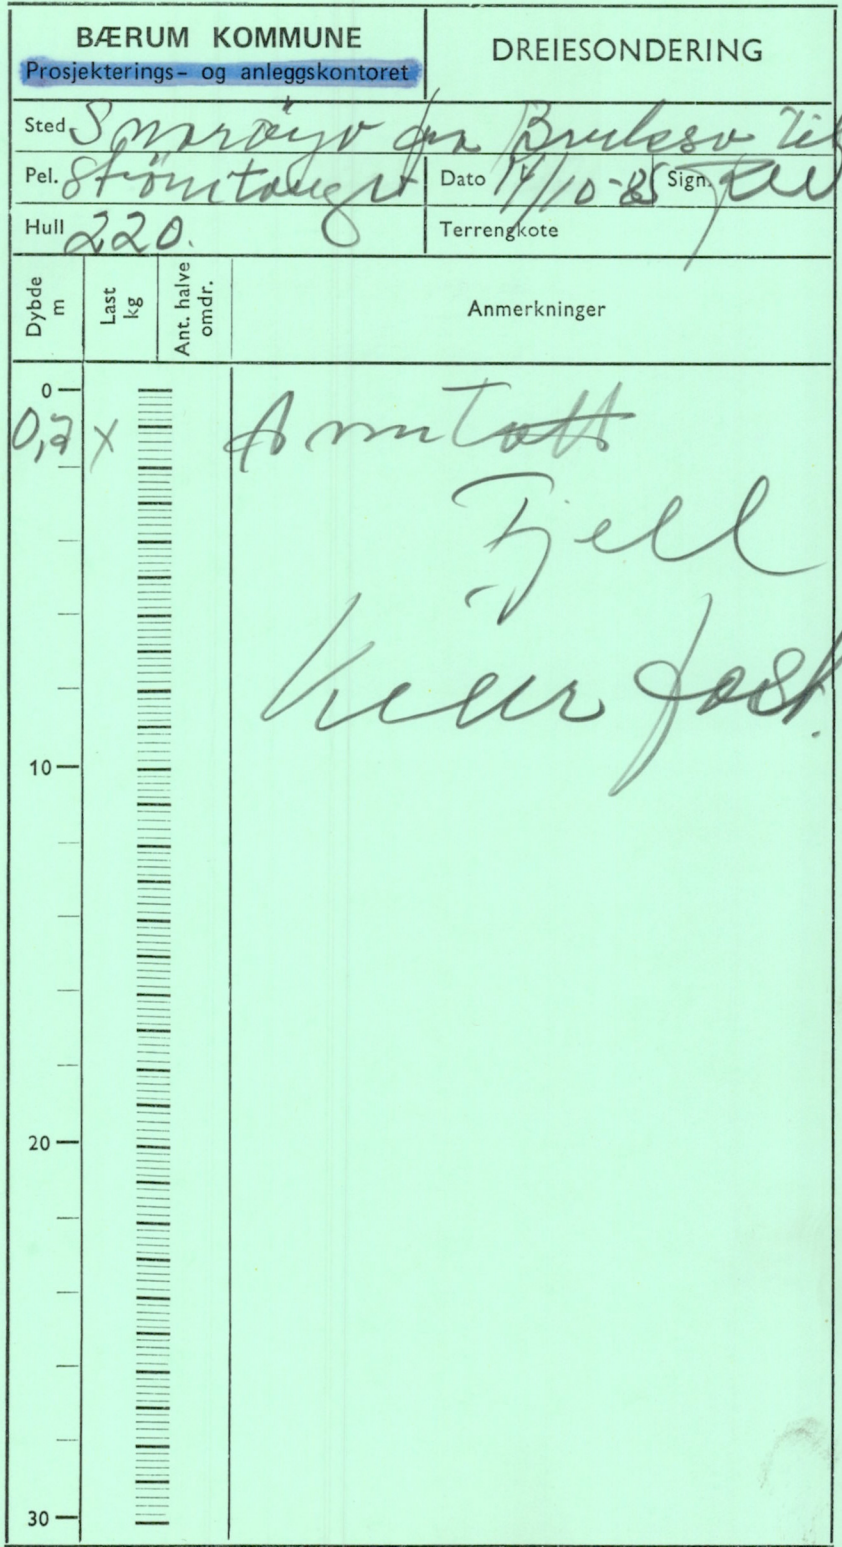 BÆRUM KOMMUNE
Prosjekterings- og anleggskontoret
DREIESONDERING
Sted Snarøyv fra Bruksv til
Pel. Strømstangv Dato 14/10-85 Sign.
Hull 220. Terrengkote
Dybde m
Last kg
Ant. halve omdr.
Anmerkninger
0
0,7 x Antatt
Fjell
fast.
10
20
30